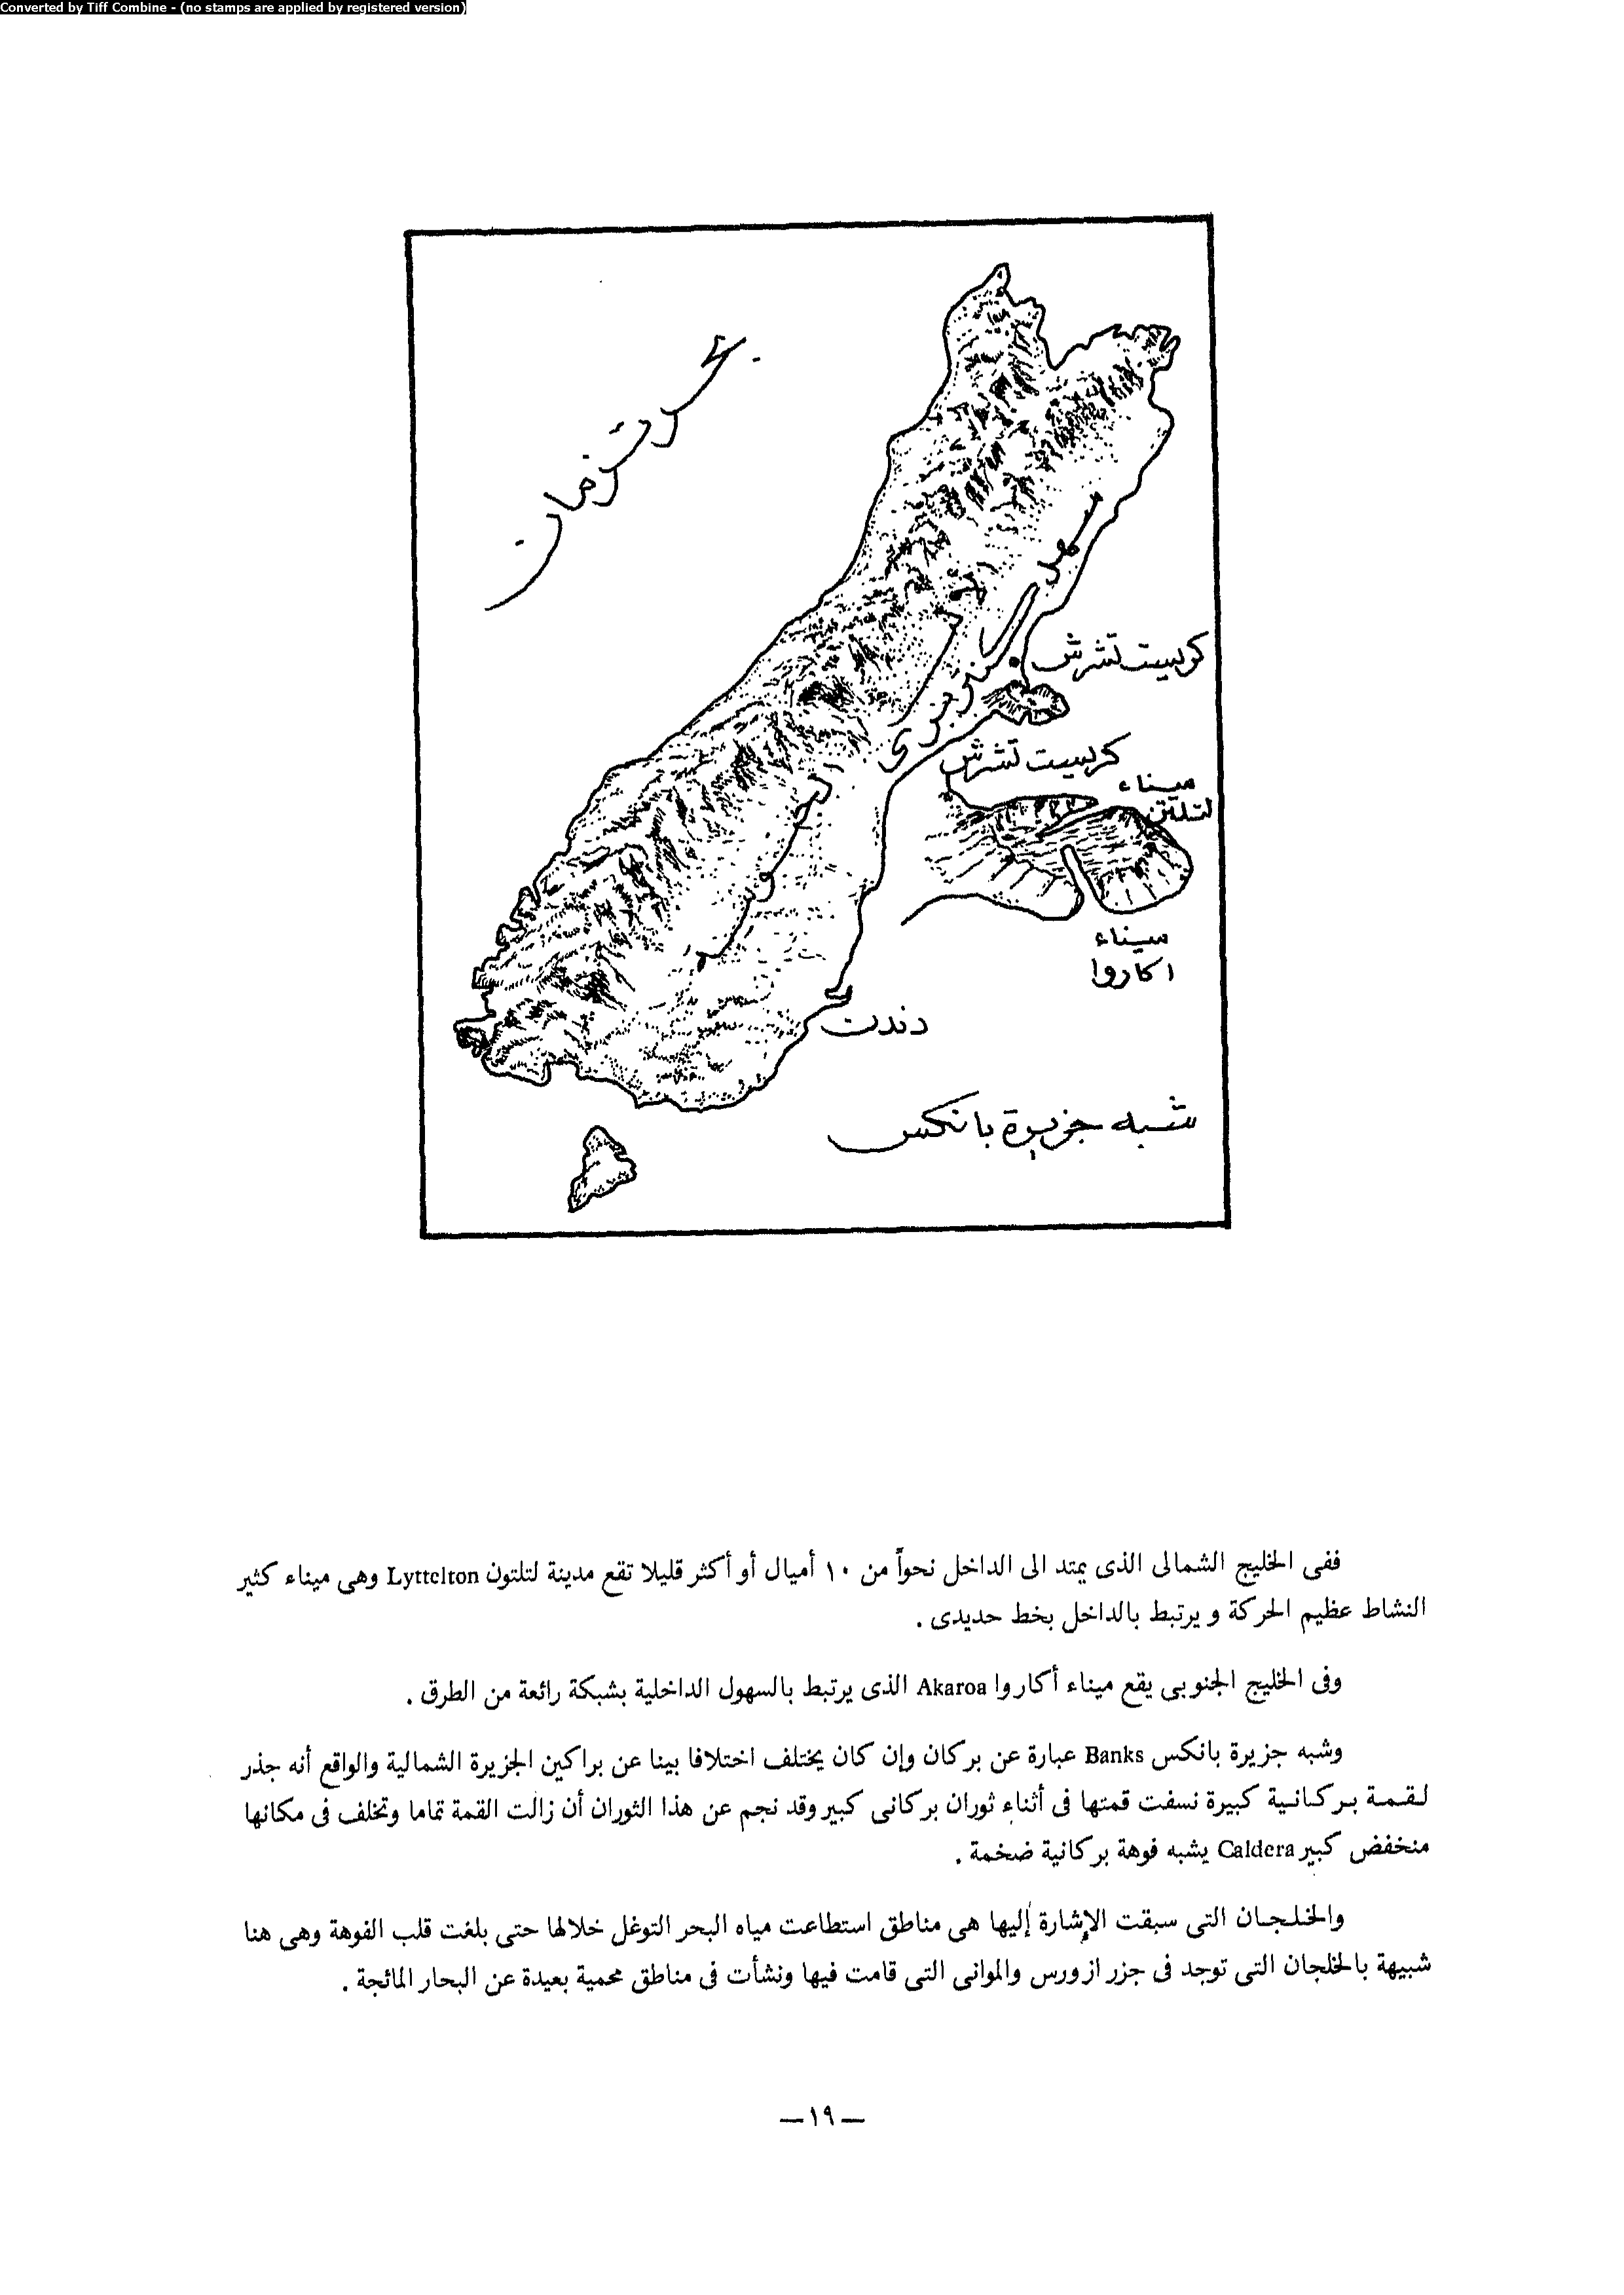 Converted by Tiff Combine - (no stamps are applied by registered version)
كريست تشرش
كريست تشرش
ميناء
لتلتن
ميناء
اكاروا
شبه جزيرة بانكس
ففى الخليج الشمالى الذى يمتد الى الداخل نحواً من ١٠ أميال أو أكثر قليلا تقع مدينة لتلتون Lyttelton وهى ميناء كثير
النشاط عظيم الحركة ويرتبط بالداخل بخط حديدى .
وفى الخليج الجنوبى يقع ميناء أكاروا Akaroa الذى يرتبط بالسهول الداخلية بشبكة رائعة من الطرق .
وشبه جزيرة بانكس Banks عبارة عن بركان وإن كان يختلف اختلافا بينا عن براكين الجزيرة الشمالية والواقع أنه جذر
لقمة بركانية كبيرة نسفت قمتها فى أثناء ثوران بركانى كبير وقد نجم عن هذا الثوران أن زالت القمة تماما وتخلف فى مكانها
منخفض كبير Caldera يشبه فوهة بركانية ضخمة .
والخلجان التى سبقت الإشارة إليها هى مناطق استطاعت مياه البحر التوغل خلالها حتى بلغت قلب الفوهة وهى هنا
شبيهة بالخلجان التى توجد فى جزر ازورس والموانى التى قامت فيها ونشأت فى مناطق محمية بعيدة عن البحار المائجة .
— ١٩ —